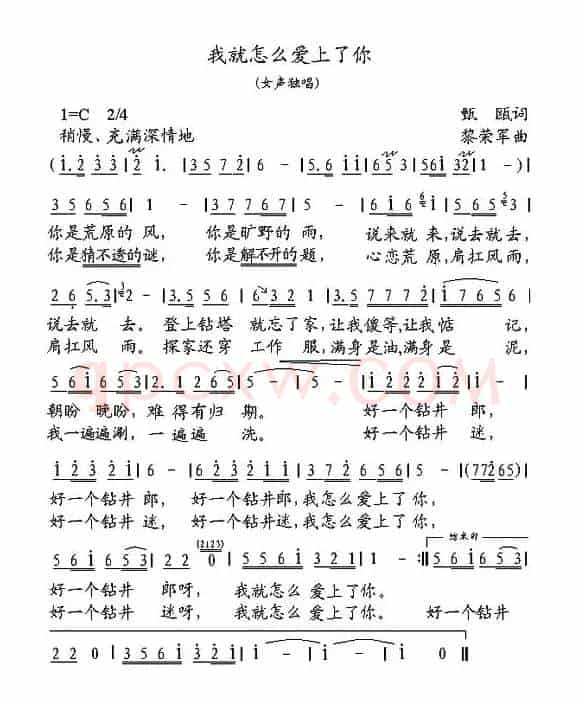 我就怎么爱上了你
(女声独唱)
1=C 2/4 甄瓯词
稍慢、充满深情地 黎荣军曲
(i. 2 3 3 | 2 i. | 3 5 7 2 | 6 - | 5. 6 i i | 6 5 3 | 5 6 i 3 2 | 1 -) |
3 5 6 5 6 | 1 - | 3 7 7 6 7 | 3 - | 6 i 6 i 6 | 5 2 5 3 |
你是荒原的风, 你是旷野的雨, 说来就来,说去就去,
你是猜不透的谜, 你是解不开的题, 心恋荒原,肩扛风雨,
2 6 5. 3 | 2 - | 3. 5 5 5 | 6 3 2 1 | 3. 5 7 7 7 2 | i 7 6 5 | 6
说去就去。登上钻塔就忘了家,让我傻等,让我惦记,
肩扛风雨。探家还穿工作服,满身是油,满身是泥,
5 6 i 6 5 3 | 2. 1 2 6 5 | 5 - | 5 - | i 2 3 2 i 2 | 5 -
朝盼晚盼,难得有归期。 好一个钻井郎,
我一遍遍涮,一遍遍洗。 好一个钻井迷,
i 2 3 2 i | 2 - | 6 2 2 i 2 i | 3 7 7 7 2 | 6 5 | 5 - | (7 7 2 6 5) |
好一个钻井郎, 好一个钻井郎,我怎么爱上了你,
好一个钻井迷, 好一个钻井迷,我怎么爱上了你,
(2123) 结束句
5 6 i 6 5 3 | 2 2 0 | 5 6 5 3 5 | 3 2 2 1 | 1 - :‖ 5 6 i 6 5 3 |
好一个钻井郎呀, 我就怎么爱上了你。
好一个钻井迷呀, 我就怎么爱上了你。 好一个钻井
2 2 0 | 3 5 6 i 5 | 6 2 2 i | i - | i - | i - | i 0 ‖